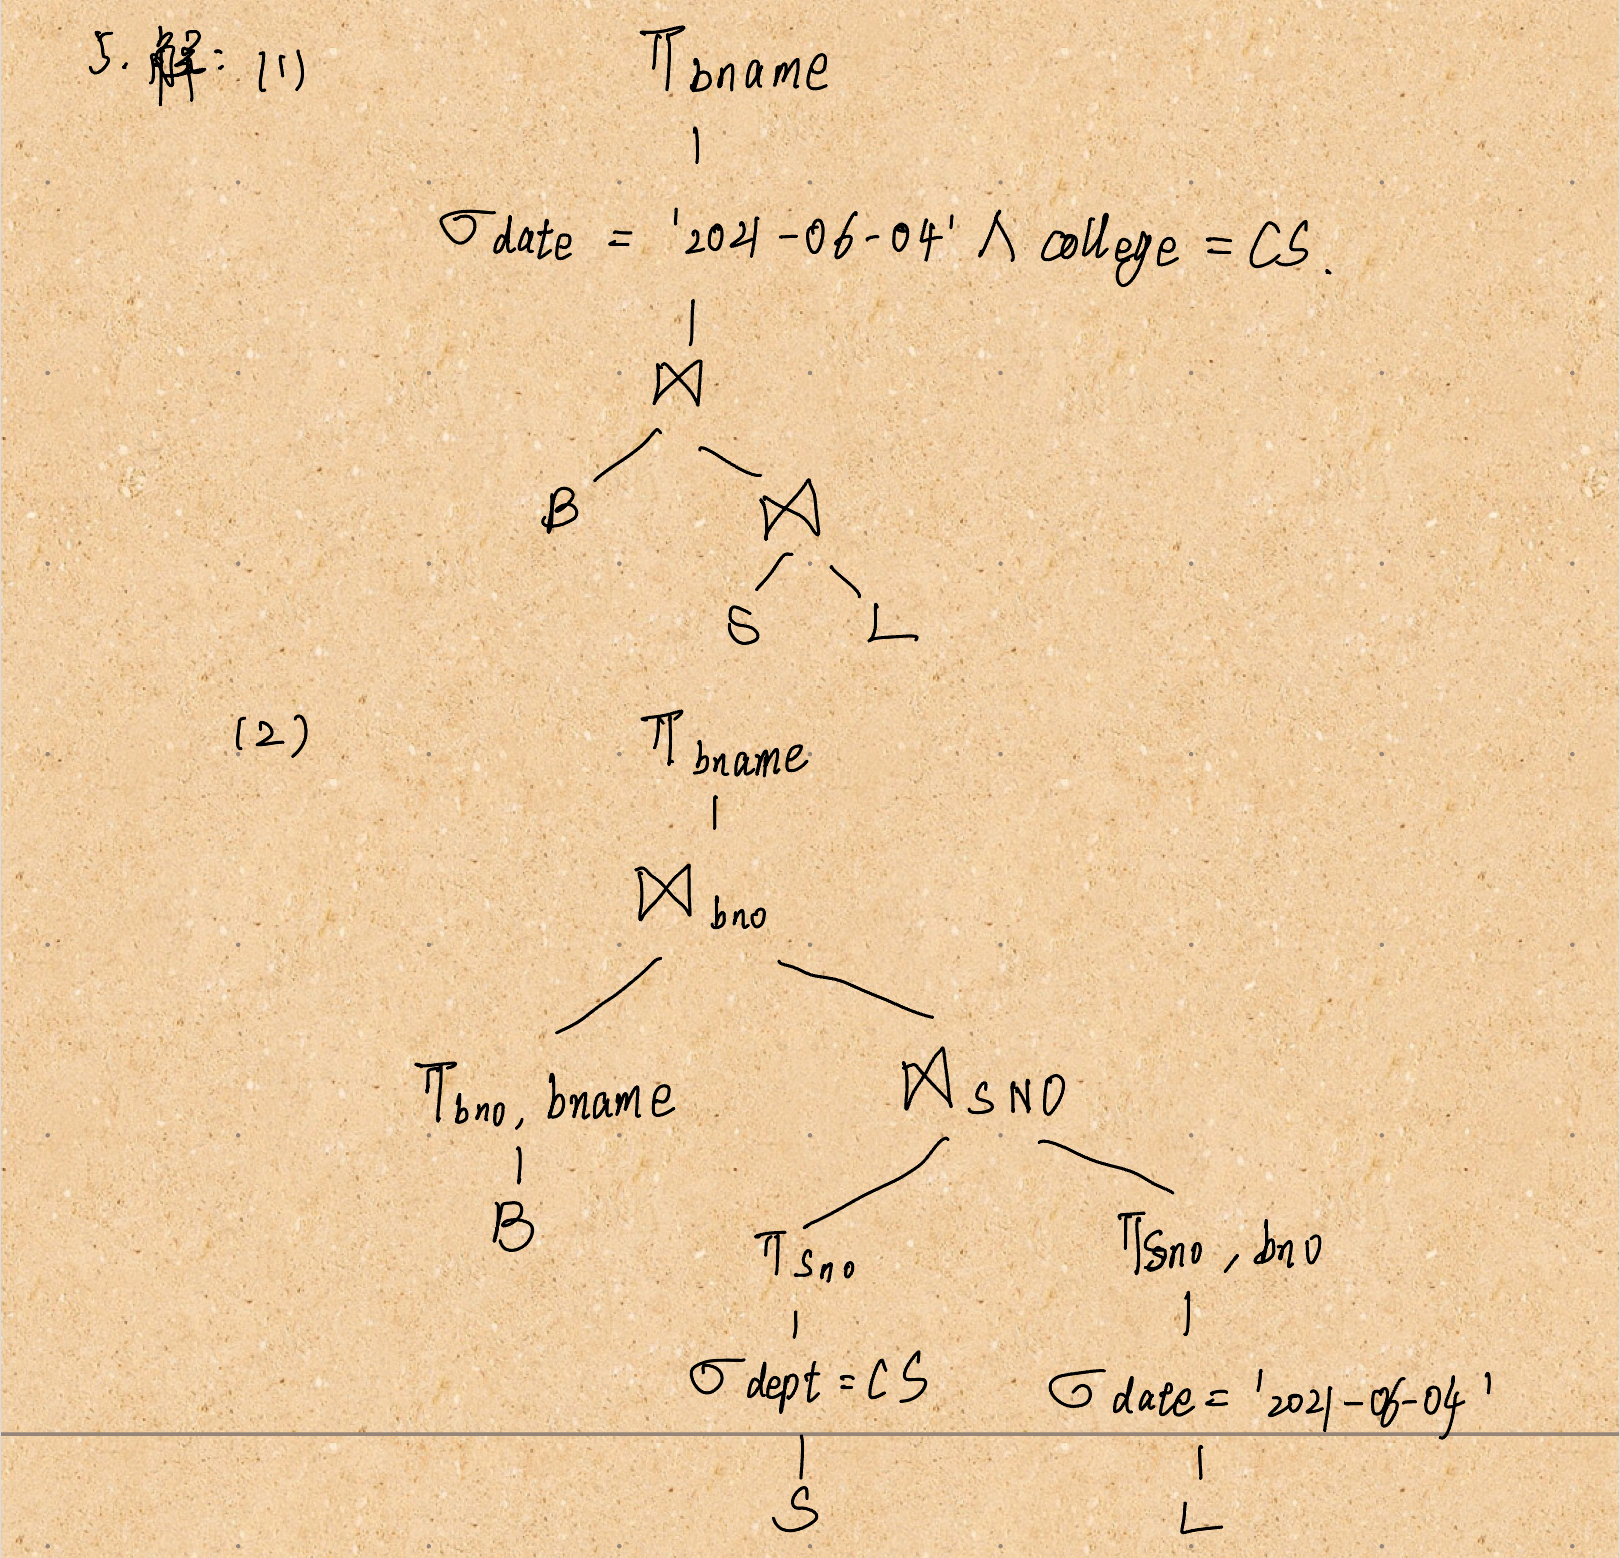 5. 解: (1)
π bname
σ date = '2021-06-04' ∧ college = CS.
⋈
B ⋈
S L
(2)
π bname
⋈ bno
π bno, bname ⋈ SNO
B
π Sno π Sno, bno
σ dept = CS σ date = '2021-06-04'
S L